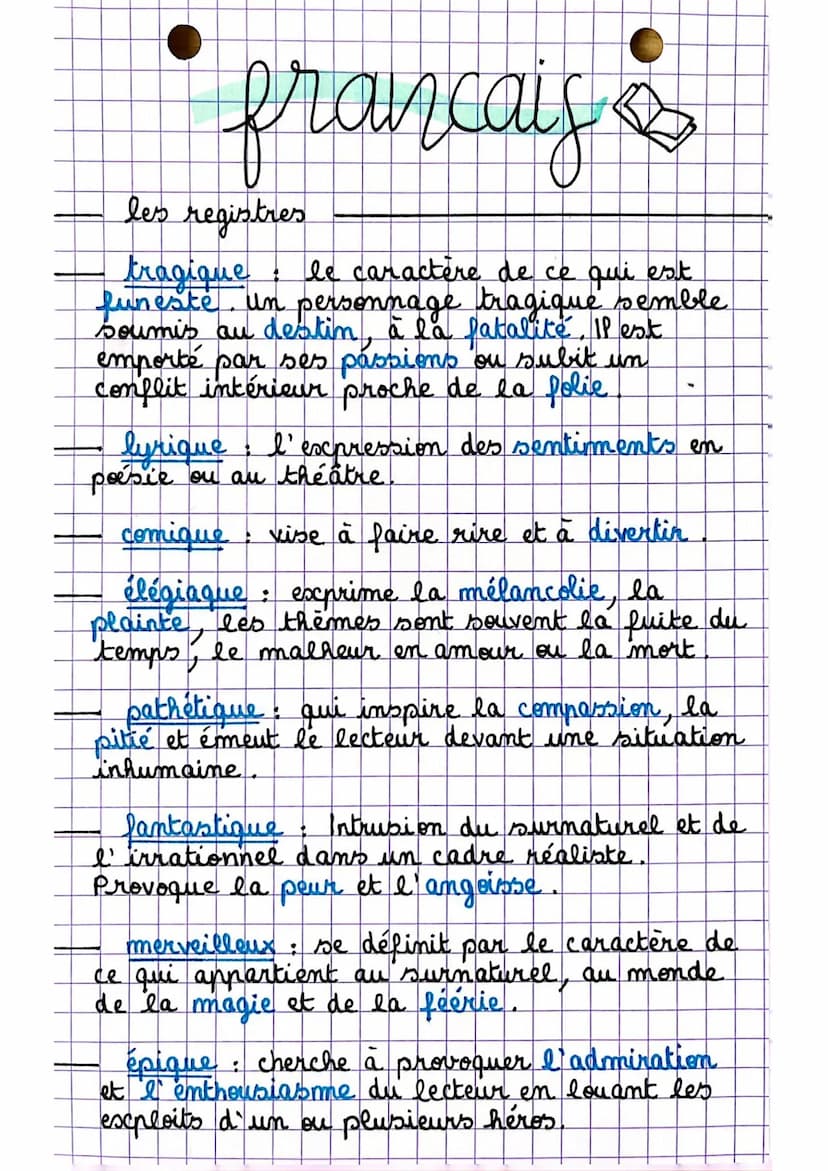 francais
les registres
tragique : le caractère de ce qui est
funeste. un personnage tragique semble
soumis au destin, à la fatalité. Il est
emporté par ses passions ou subit un
conflit intérieur proche de la folie.
lyrique : l'expression des sentiments en
poésie ou au théâtre.
comique : vise à faire rire et à divertir.
élégiaque : exprime la mélancolie, la
plainte, les thèmes sont souvent la fuite du
temps, le malheur en amour ou la mort.
pathétique : qui inspire la compassion, la
pitié et émeut le lecteur devant une situation
inhumaine.
fantastique : Intrusion du surnaturel et de
l'irrationnel dans un cadre réaliste.
Provoque la peur et l'angoisse.
merveilleux : se définit par le caractère de
ce qui appartient au surnaturel, au monde
de la magie et de la féérie.
épique : cherche à provoquer l'admiration
et l'enthousiasme du lecteur en louant les
exploits d'un ou plusieurs héros.